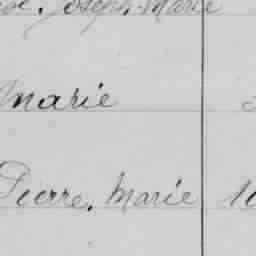 Joseph Marie
Marie
Pierre, Marie 10